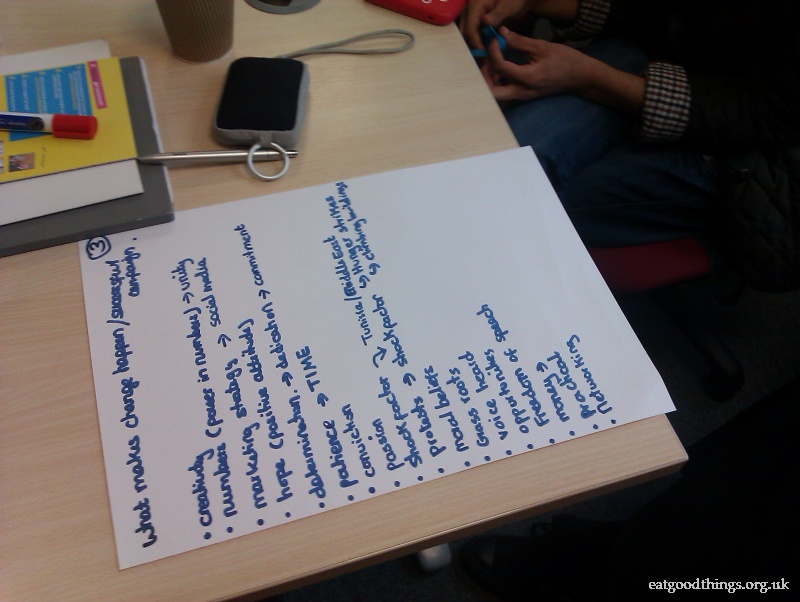 ③
what makes change happen / successful
campaign.
• creativity
• numbers (power in numbers) → unity
• marketing strategy → social media
• hope (positive attitude)
• determination. → dedication → commitment
• patience → TIME
• conviction
• passion
• shock factor → Tunisia / Middle East
• Protests → shock factor → Hunger strikes
→ climbing buildings
• protests
• moral beliefs
• Grass roots
• voice heard
• opportunities
• Freedom of speech
• money →
• practical
• Networking
eatgoodthings.org.uk